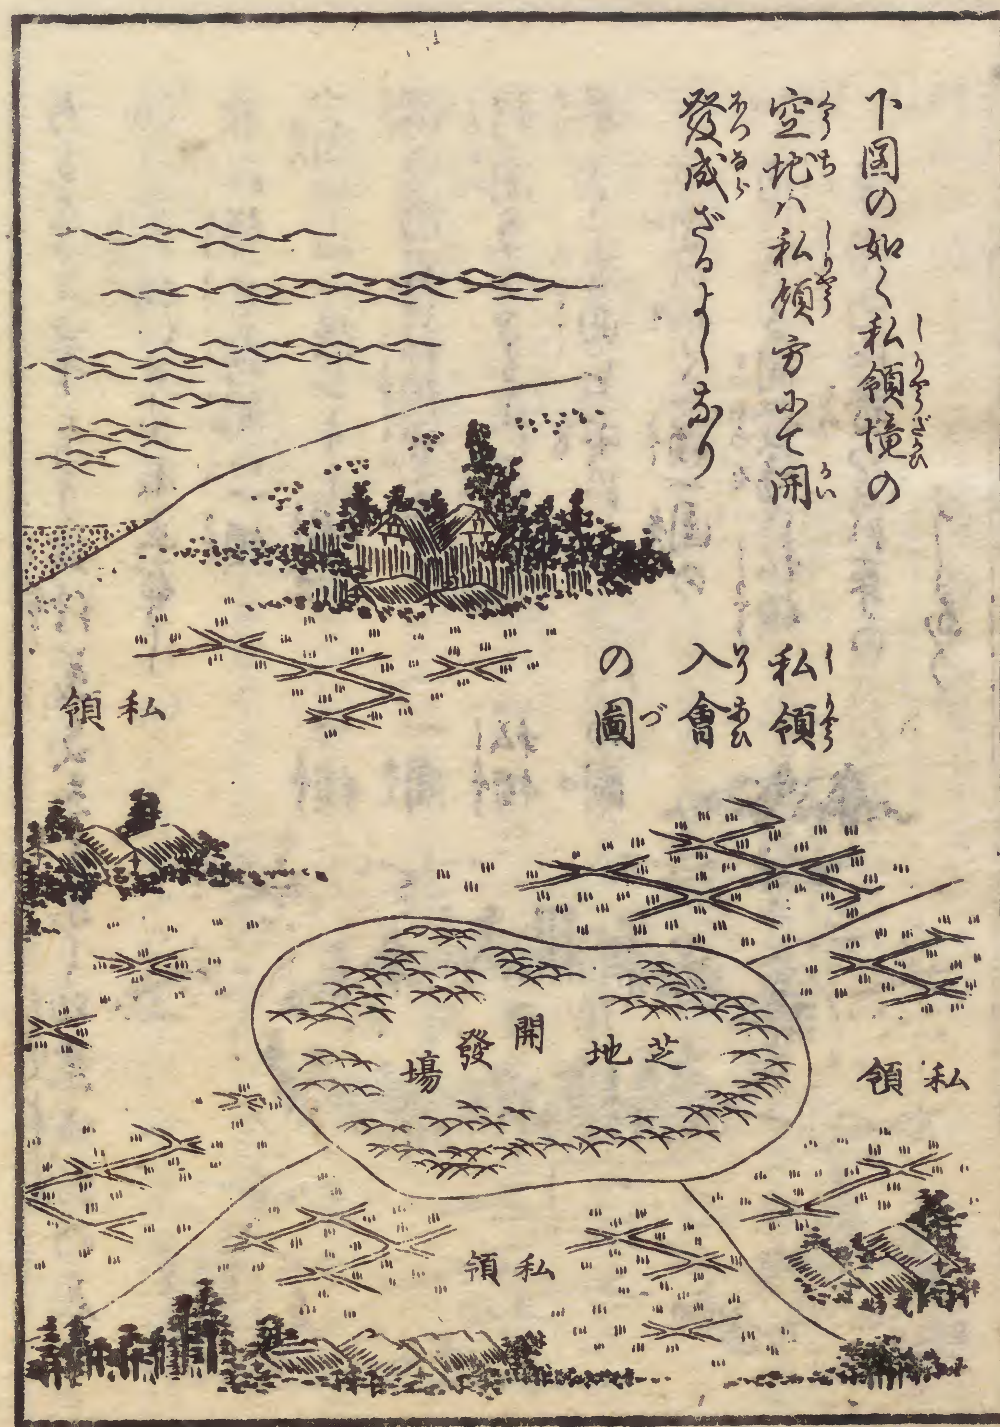 下図の如く私領境の
空地ハ私領方にて開
發成ざるよしなり
私領
入會
の圖
私領
芝地
開發場
私領
私領